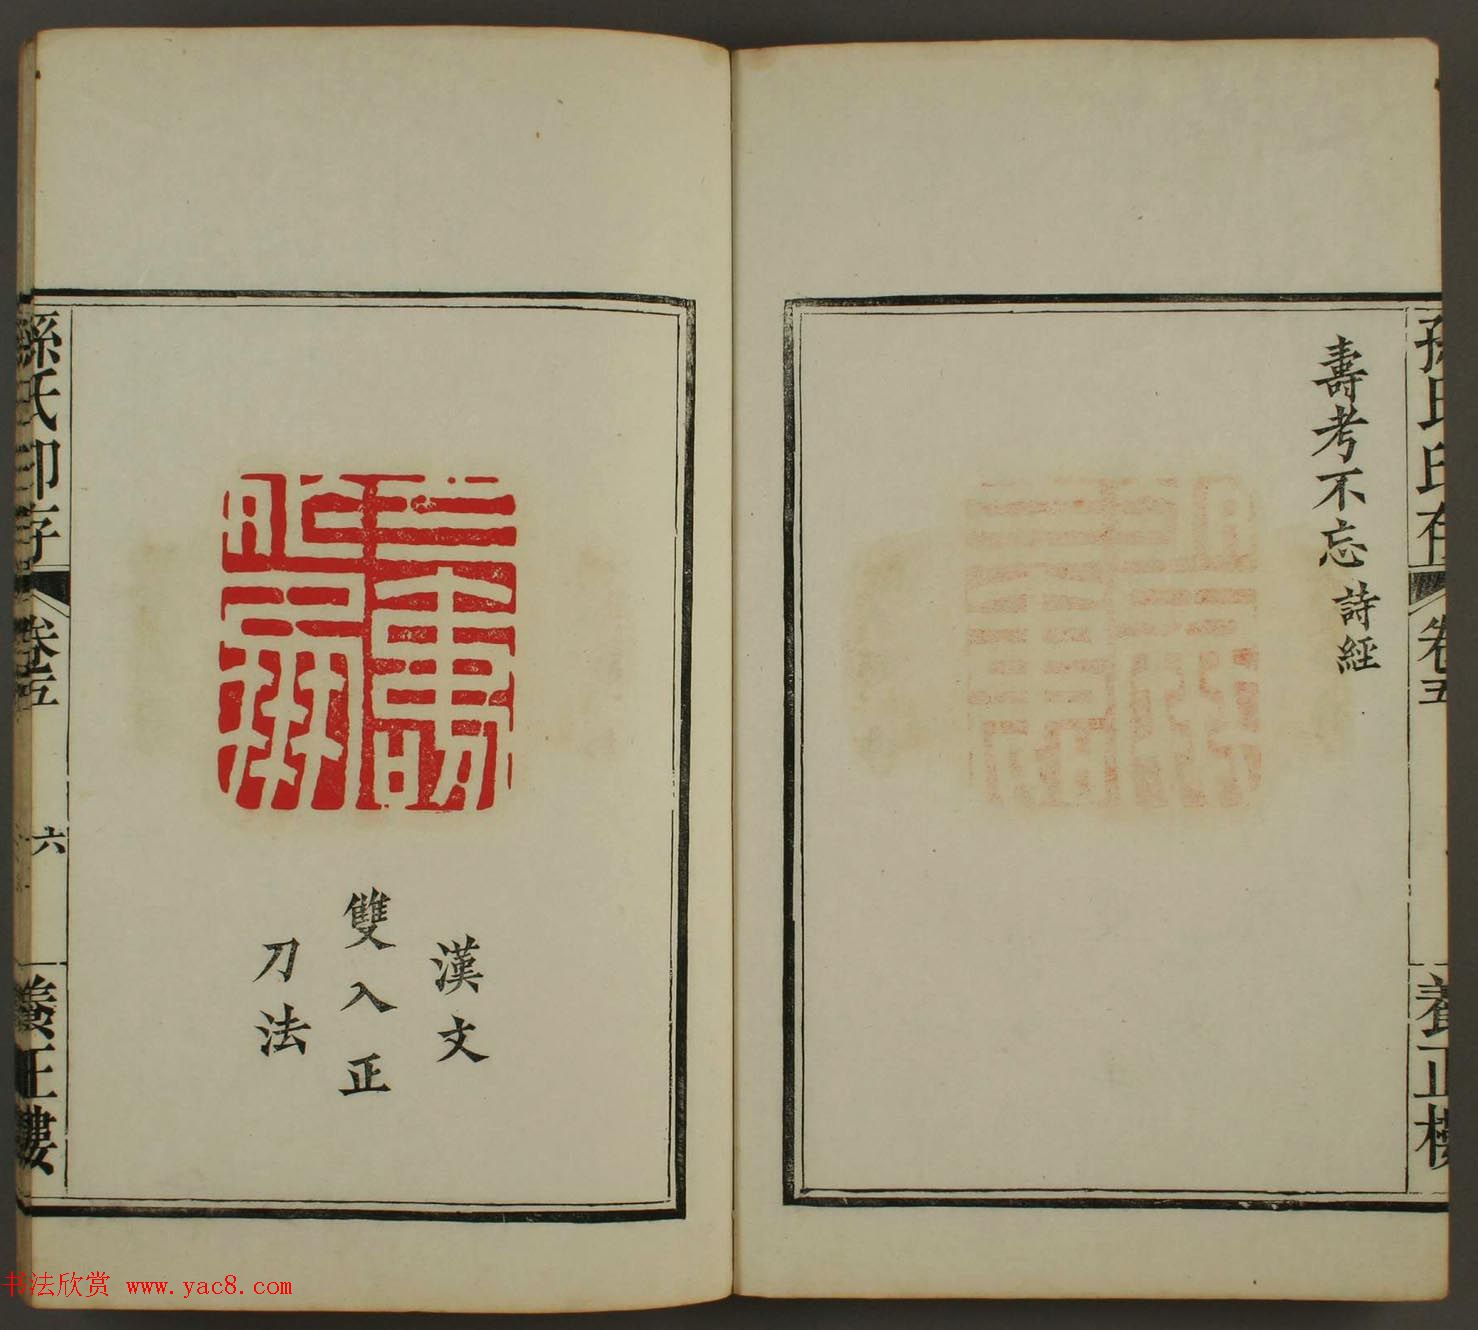 孫氏印存
卷五
養正樓
壽考不忘 詩經
漢文
雙入正
刀法
孫氏印存
卷五
六
養正樓
书法欣赏 www.yac8.com